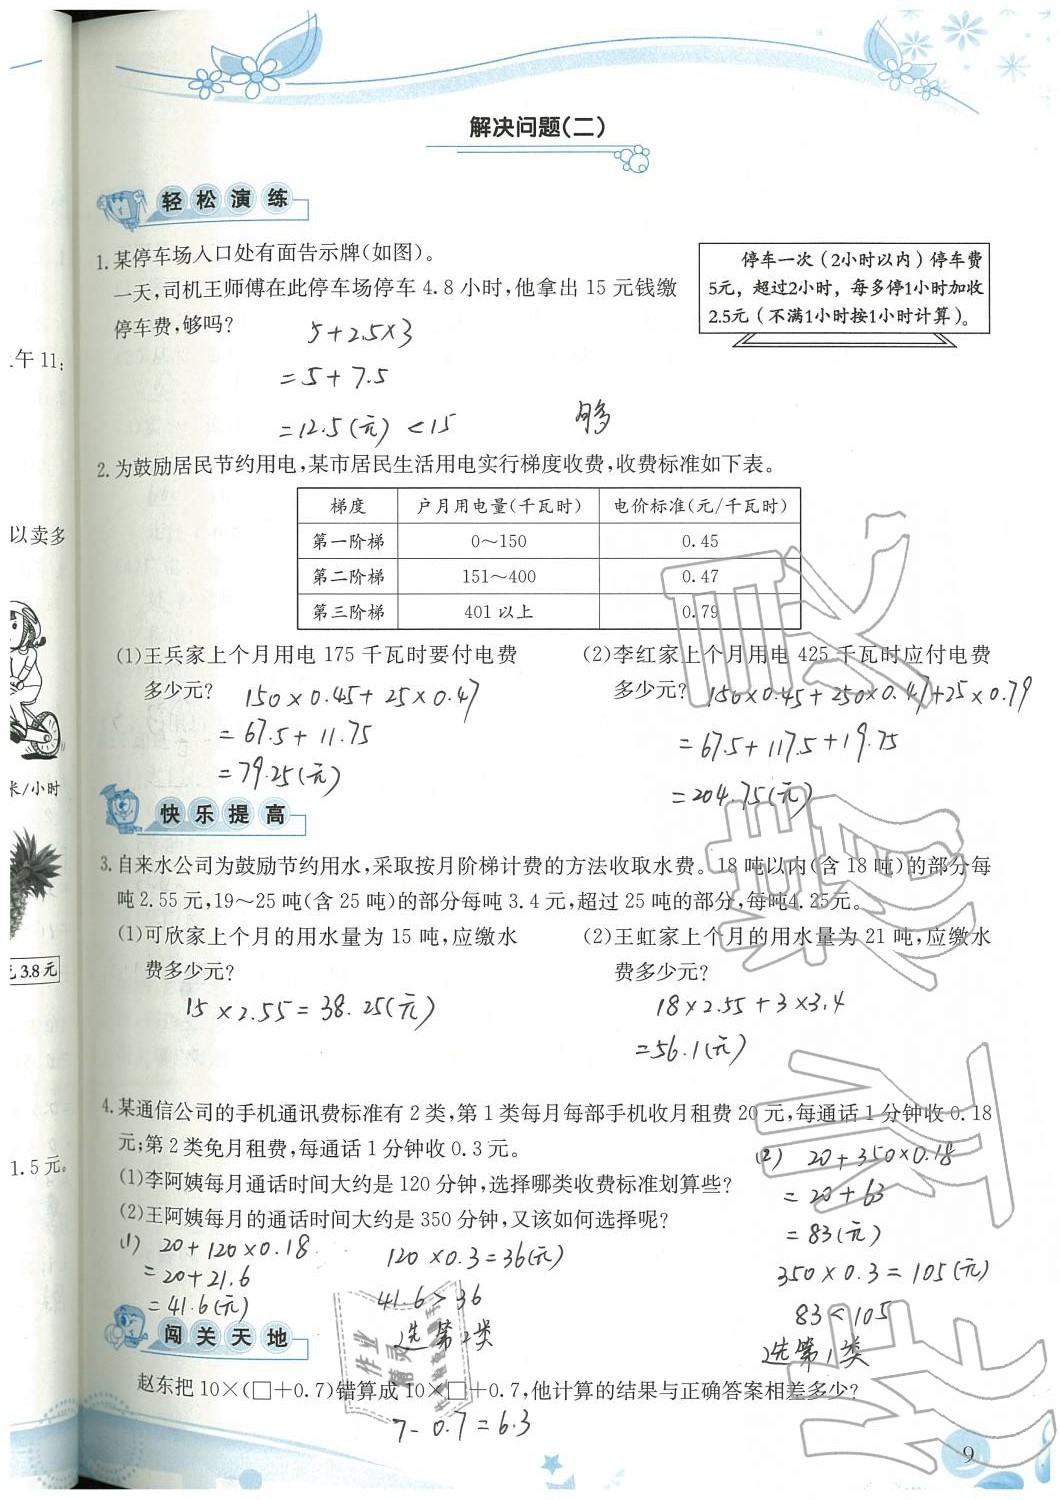 解决问题(二)
轻松演练
1.某停车场入口处有面告示牌(如图)。
一天,司机王师傅在此停车场停车 4.8 小时,他拿出 15 元钱缴
停车费,够吗?
停车一次(2小时以内)停车费
5元，超过2小时，每多停1小时加收
2.5元(不满1小时按1小时计算)。
5+2.5×3
=5+7.5
=12.5(元) <15
够
2.为鼓励居民节约用电,某市居民生活用电实行梯度收费,收费标准如下表。
梯度 户月用电量(千瓦时) 电价标准(元/千瓦时)
第一阶梯 0～150 0.45
第二阶梯 151～400 0.47
第三阶梯 401 以上 0.79
(1)王兵家上个月用电 175 千瓦时要付电费
多少元?
150×0.45+25×0.47
=67.5+11.75
=79.25(元)
(2)李红家上个月用电 425 千瓦时应付电费
多少元?
150×0.45+250×0.47+25×0.79
=67.5+117.5+19.75
=204.75(元)
快乐提高
3.自来水公司为鼓励节约用水,采取按月阶梯计费的方法收取水费。18 吨以内(含 18 吨)的部分每
吨2.55 元,19～25 吨(含 25 吨)的部分每吨 3.4 元,超过 25 吨的部分,每吨4.25元。
(1)可欣家上个月的用水量为 15 吨,应缴水
费多少元?
15×2.55=38.25(元)
(2)王虹家上个月的用水量为 21 吨,应缴水
费多少元?
18×2.55+3×3.4
=56.1(元)
4.某通信公司的手机通讯费标准有 2 类,第 1 类每月每部手机收月租费 20 元,每通话 1 分钟收 0.18
元;第 2 类免月租费,每通话 1 分钟收 0.3 元。
(1)李阿姨每月通话时间大约是 120 分钟,选择哪类收费标准划算些?
(2)王阿姨每月的通话时间大约是 350 分钟,又该如何选择呢?
(1) 20+120×0.18
=20+21.6
=41.6(元)
120×0.3=36(元)
41.6>36
选第2类
(2) 20+350×0.18
=20+63
=83(元)
350×0.3=105(元)
83<105
选第1类
闯关天地
赵东把 10×(□+0.7)错算成 10×□+0.7,他计算的结果与正确答案相差多少?
7-0.7=6.3
9
午 11:
以卖多
米/小时
3.8元
1.5 元。
作业
精灵